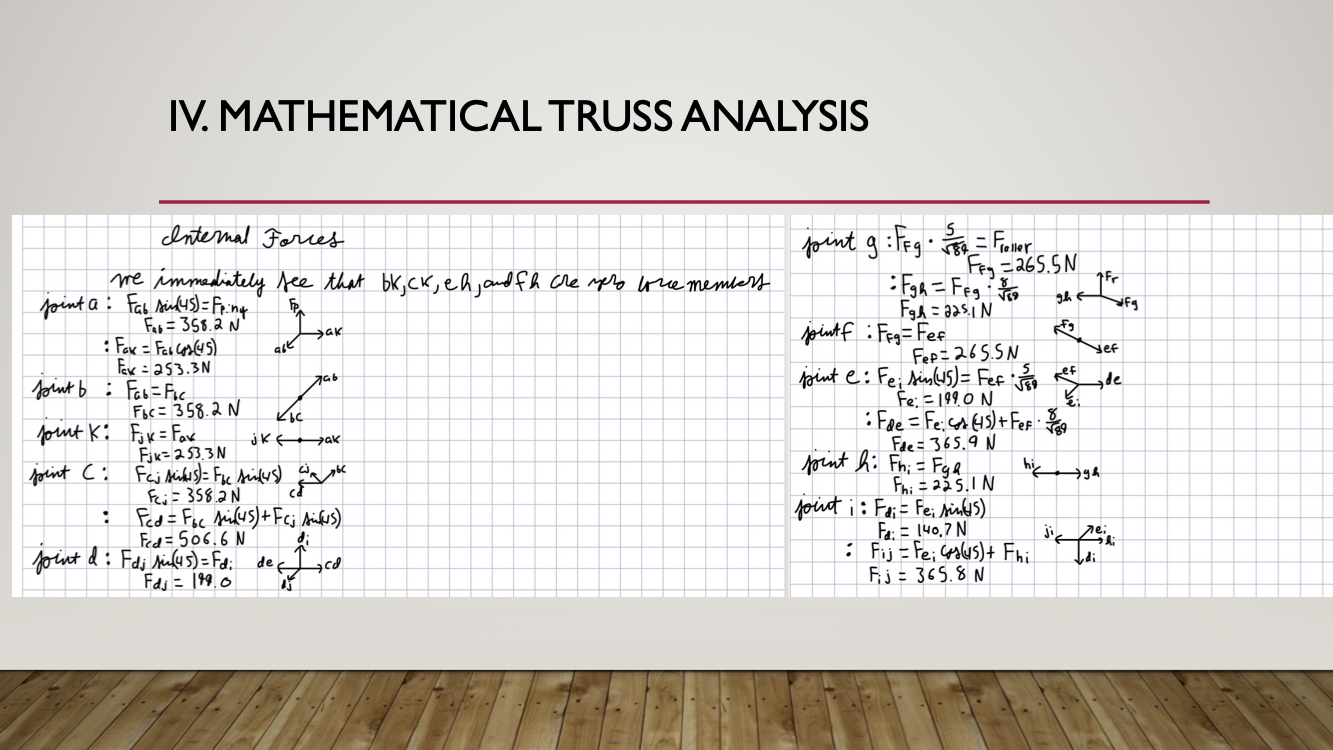 IV. MATHEMATICAL TRUSS ANALYSIS
Internal Forces
we immediately see that bk, ck, eh, and fh are zero force members
joint a : Fab sin(45) = Fpiny
Fab = 358.2 N
: Fak = Fab cos(45)
Fak = 253.3 N
Fp
ak
ab
joint b : Fab = Fbc
Fbc = 358.2 N
ab
bc
joint K : Fjk = Fak
Fjk = 253.3 N
jK
ak
joint C : Fcj sin(45) = Fbc sin(45)
Fcj = 358.2 N
: Fcd = Fbc sin(45) + Fcj sin(45)
Fcd = 506.6 N
cj
bc
cd
joint d : Fdj sin(45) = Fdi
Fdj = 199.0
di
de
cd
dj
joint g : Ffg · 5/√89 = Froller
Ffg = 265.5 N
: Fgh = Ffg · 8/√89
Fgh = 225.1 N
Fr
gh
Fg
joint f : Ffg = Fef
Fef = 265.5 N
Fg
ef
joint e : Fei sin(45) = Fef · 5/√89
Fei = 199.0 N
: Fde = Fei cos(45) + Fef · 8/√89
Fde = 365.9 N
ef
de
ei
joint h : Fhi = Fgh
Fhi = 225.1 N
hi
gh
joint i : Fdi = Fei sin(45)
Fdi = 140.7 N
: Fij = Fei cos(45) + Fhi
Fij = 365.8 N
ji
ei
hi
di